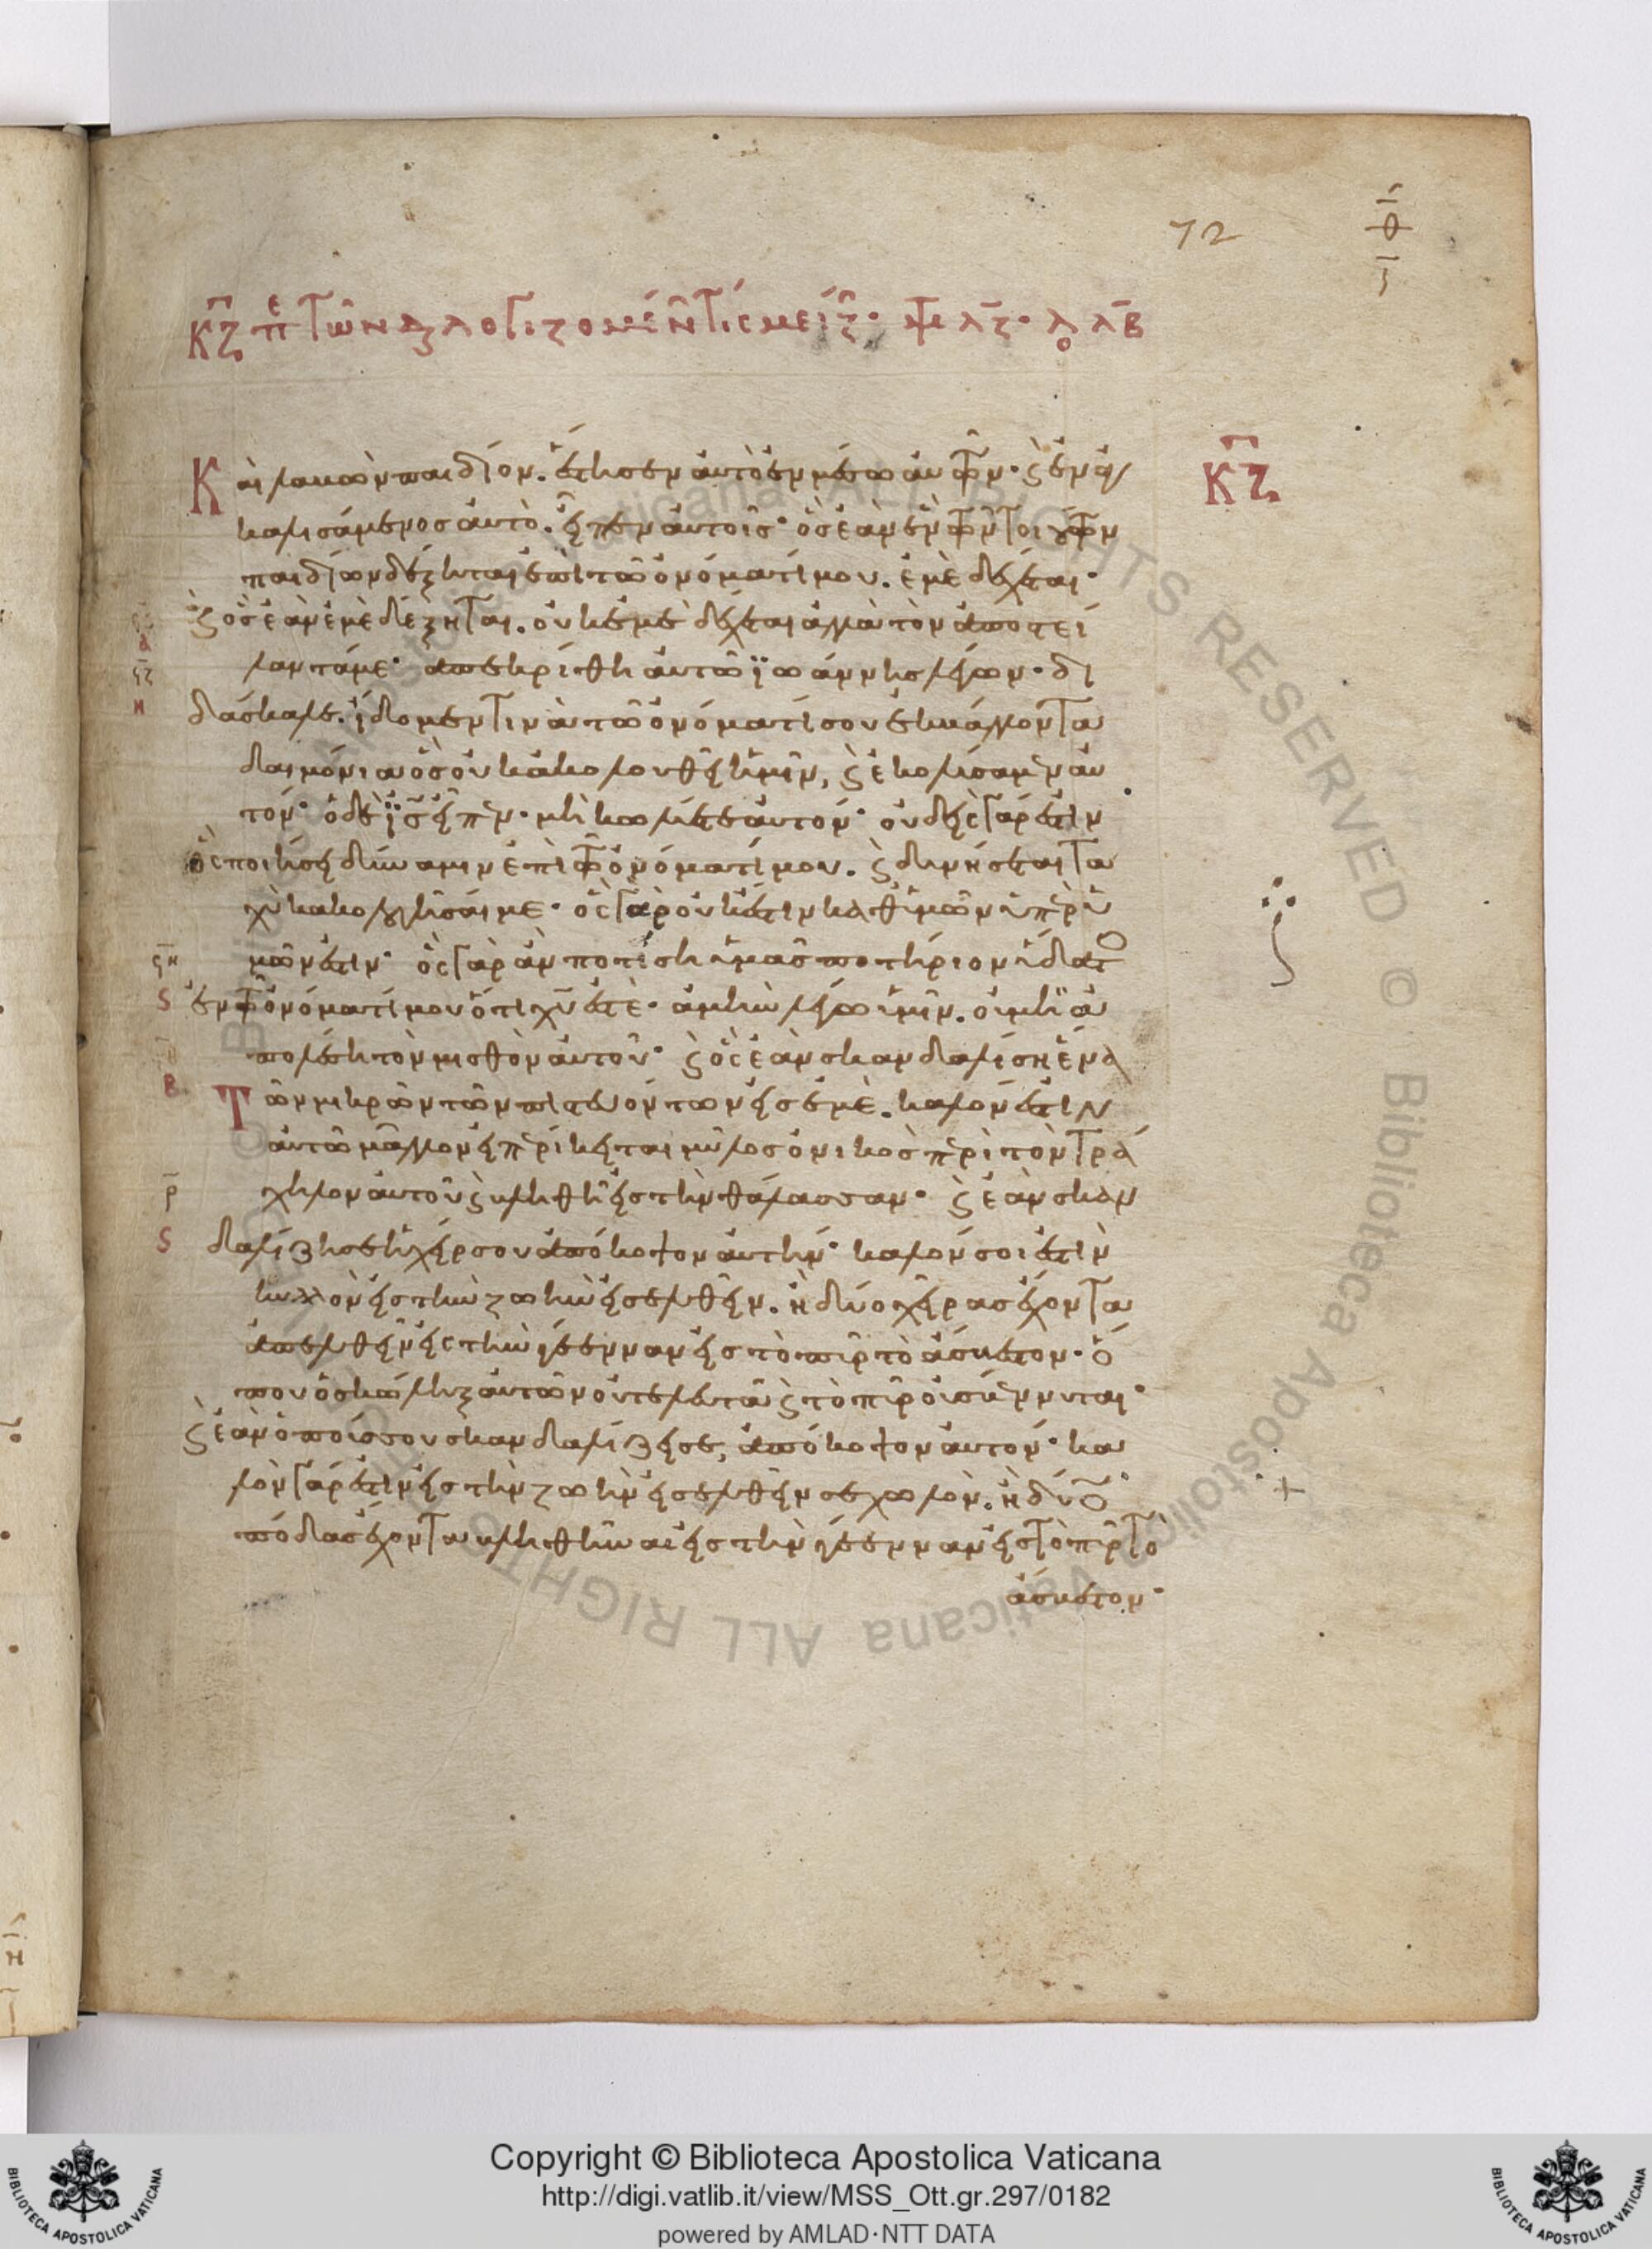 72
κζ πε τῶν διαλογιζομένων τίς μείζων· ΜΤ λζ· Λο λβ
Καὶ λαβὼν παιδίον. ἔστησεν αὐτὸ ἐν μέσω αὐτῶν· καὶ ἐναγ
καλισάμενος αὐτὸ. εἶπεν αὐτοῖς· ὃς ἐὰν ἓν τῶν τοιούτων
παιδίων δέξηται ἐπὶ τῶ ὀνόματί μου. ἐμὲ δέχεται·
καὶ ὃς ἐὰν ἐμὲ δέξηται. οὐκ ἐμὲ δέχεται ἀλλὰ τὸν ἀποστεί
λαντά με· ἀπεκρίθη αὐτῶ ϊωάννης λέγων· δι
δάσκαλε. εἴδομεν τινὰ τῶ ὀνόματί σου ἐκβάλλοντα
δαιμόνια ὃς οὐκ ἀκολουθεῖ ἡμῖν, καὶ ἐκολύσαμεν αὐ
τόν· ὁ δὲ ις εἶπεν· μὴ κωλύετε αὐτόν· οὐδεὶς γάρ ἐστιν
ὃς ποιήσει δύναμιν ἐπὶ τῶ ὀνόματί μου. καὶ δυνήσεται τα
χὺ κακολογῆσαί με· ὃς γὰρ οὐκ ἔστιν καθ ἡμῶν ὑπὲρ ἡ
μῶν ἐστιν· ὃς γὰρ ἂν ποτίση ὑμᾶς ποτήριον ὕδατος
ἐν τῶ ὀνόματί μου ὅτι χυ ἐστὲ· ἀμὴν λέγω ὑμῖν. οὐ μὴ ἀ
πολέση τὸν μισθὸν αὐτοῦ· καὶ ὃς ἐὰν σκανδαλίση ἕνα
Τῶν μικρῶν τῶν πιστευόντων εἰς ἐμὲ. καλόν ἐστιν
αὐτῶ μᾶλλον εἰ περίκειται μύλος ὀνικὸς περὶ τὸν τρά
χηλον αὐτοῦ καὶ βληθῆ εἰς τὴν θάλασσαν· καὶ ἐὰν σκαν
δαλίζη σε ἡ χείρ σου ἀπόκοψον αὐτήν· καλόν σοι ἐστὶν
κυλλὸν εἰς τὴν ζωὴν εἰσελθεῖν. ἢ δύο χεῖρας ἔχοντα
ἀπελθεῖν εἰς τὴν γέενναν εἰς τὸ πῦρ τὸ ἄσβεστον· ὅ
που ὁ σκώληξ αὐτῶν οὐ τελευτᾶ καὶ τὸ πῦρ οὐ σβέννυται·
καὶ ἐὰν ὁ πούς σου σκανδαλίζει σε, ἀπόκοψον αὐτόν· κα
λὸν γάρ ἐστιν εἰς τὴν ζωὴν εἰσελθεῖν σε χωλὸν. ἢ δύο
πόδας ἔχοντα βληθῆναι εἰς τὴν γέενναν εἰς τὸ πῦρ τὸ
ἄσβεστον·
κζ
Copyright © Biblioteca Apostolica Vaticana
http://digi.vatlib.it/view/MSS_Ott.gr.297/0182
powered by AMLAD·NTT DATA